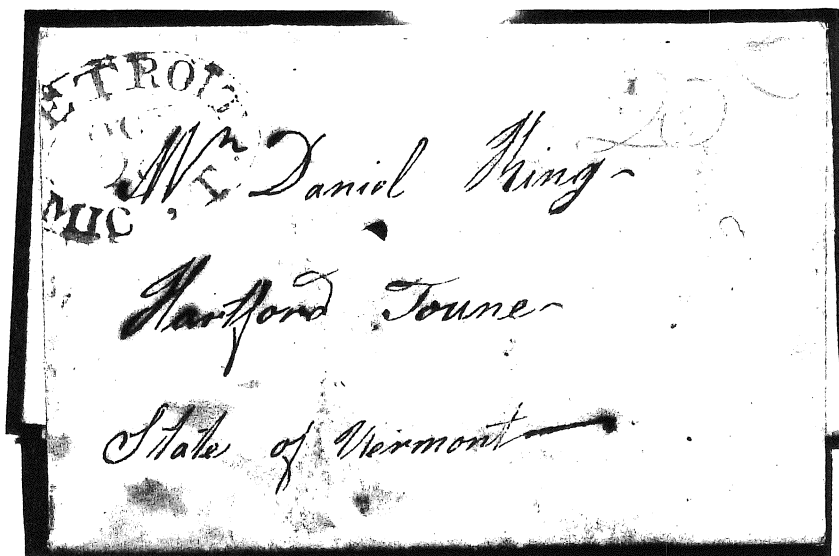 DETROIT
OC
MIC. T.
25
Mr Daniel King
Hartford Toune
State of Vermont